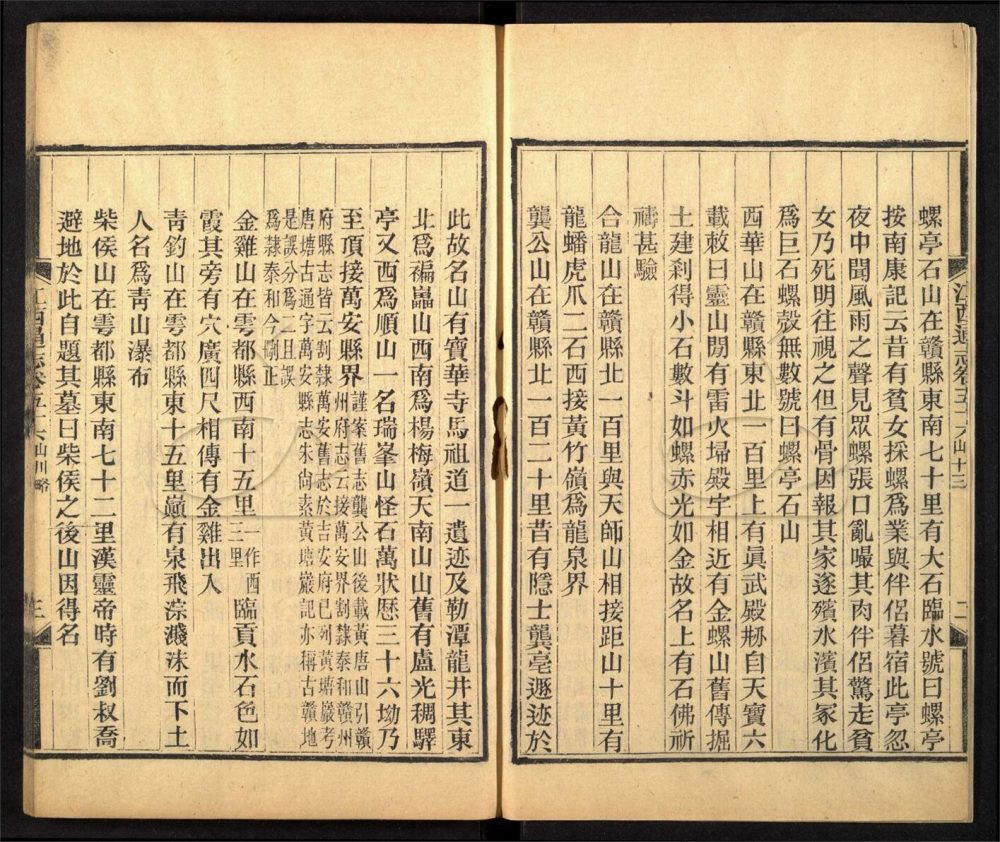 螺亭石山在贛縣東南七十里有大石臨水號曰螺亭
按南康記云昔有貧女採螺爲業與伴侶暮宿此亭忽
夜中聞風雨之聲見眾螺張口亂嘬其肉伴侶驚走貧
女乃死明往視之但有骨因報其家遂殯水濱其冢化
爲巨石螺殼無數號曰螺亭石山
西華山在贛縣東北一百里上有眞武殿刱自天寶六
載敕曰靈山閒有雷火埽殿字相近有金螺山舊傳掘
土建刹得小石數斗如螺赤光如金故名上有石佛祈
禱甚驗
合龍山在贛縣北一百里與天師山相接距山十里有
龍蟠虎爪二石西接黃竹嶺爲龍泉界
龔公山在贛縣北一百二十里昔有隱士龔亳遯迹於
江西通志卷五十六 山十三 二
此故名山有寶華寺馬祖道一遺迹及勒潭龍井其東
北爲褊嵓山西南爲楊梅嶺天南山山舊有盧光稠驛
亭又西爲順山一名瑞峯山怪石萬狀歷三十六坳乃
至頂接萬安縣界
謹案舊志龔公山後載黃唐山引贛
州府志云接萬安界割隸泰和贛州
府縣志皆云割隸萬安舊志於吉安府已列黃塘巖考
唐塘古通字萬安縣志朱尙素黃塘巖記亦稱古贛地
是誤分爲二且誤
爲隸泰和今刪正
金雞山在雩都縣西南十五里
一作西
三里
臨貢水石色如
霞其旁有穴廣四尺相傳有金雞出入
靑鈞山在雩都縣東十五里巔有泉飛淙濺沫而下土
人名爲靑山瀑布
柴侯山在雩都縣東南七十二里漢靈帝時有劉叔喬
避地於此自題其墓曰柴侯之後山因得名
江西通志卷五十六 山川略 三